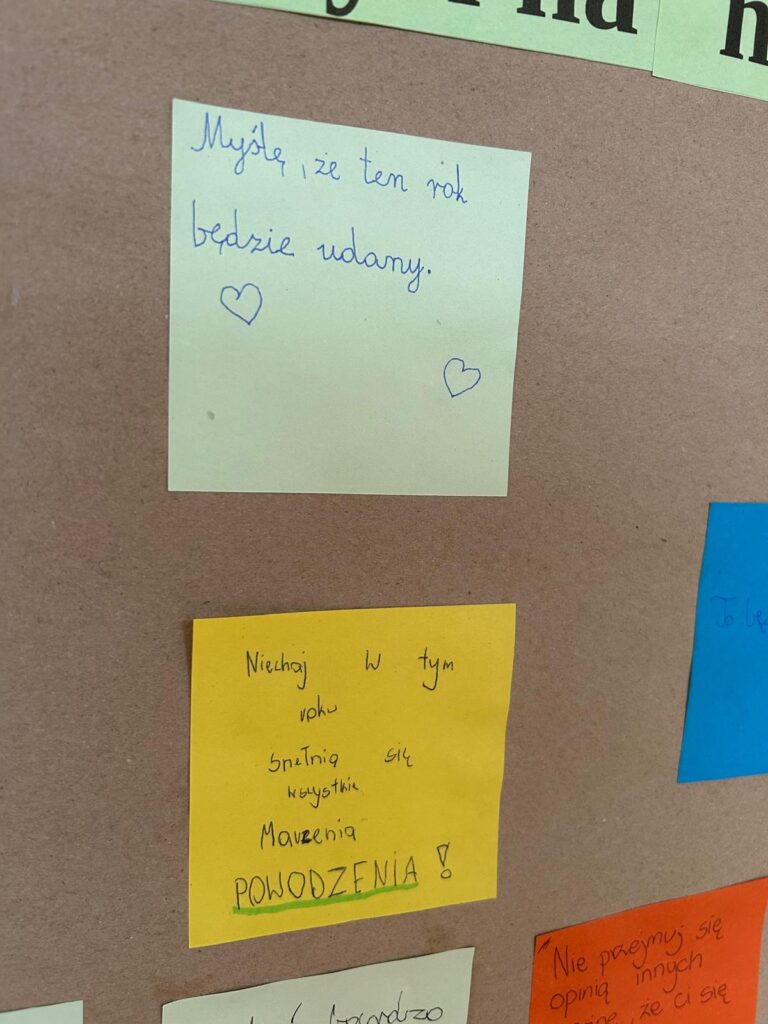 na
Myślę, że ten rok
będzie udany.
Niechaj w tym
roku
Spełnią się
wszystkie
Marzenia
POWODZENIA!
To
Nie przejmuj się
opinią innych
że ci się
bardzo